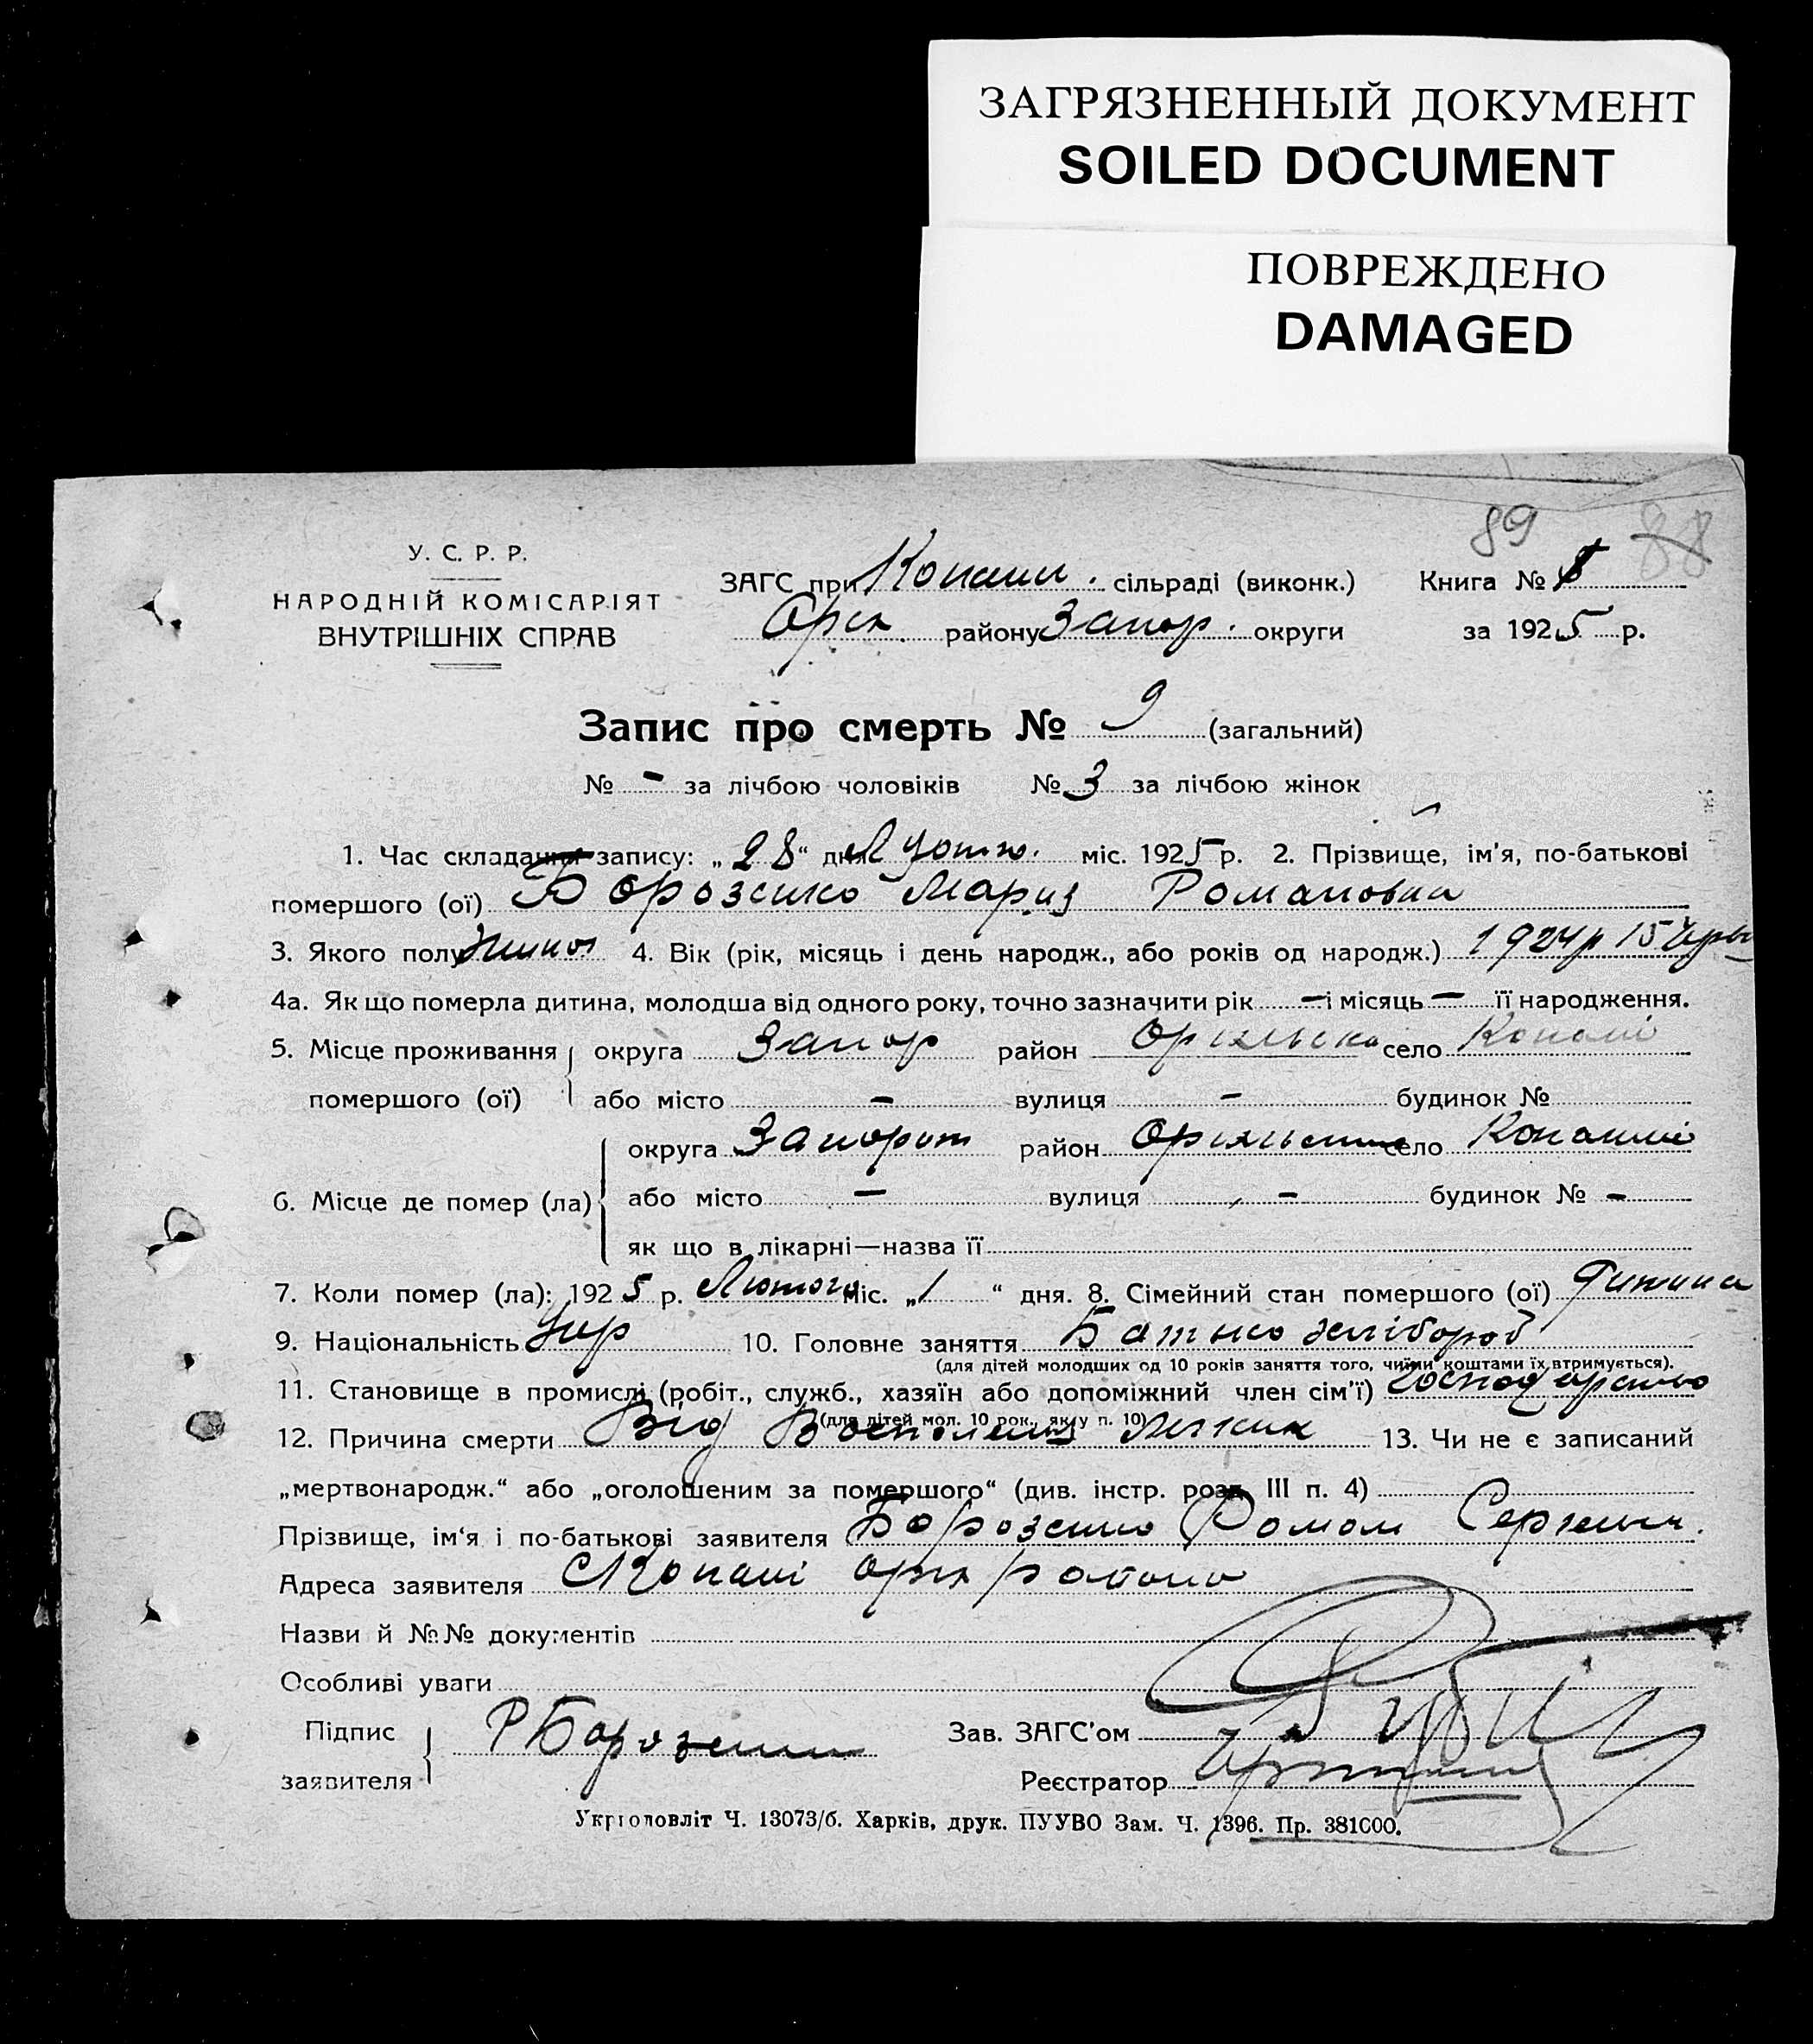 ЗАГРЯЗНЕННЫЙ ДОКУМЕНТ
SOILED DOCUMENT
ПОВРЕЖДЕНО
DAMAGED
89 88
У. С. Р. Р.
НАРОДНІЙ КОМІСАРІЯТ
ВНУТРІШНІХ СПРАВ
ЗАГС при Копани. сільраді (виконк.) Книга №
Оріх. району Запор. округи за 1925 р.
Запис про смерть № 9 (загальний)
№ - за лічбою чоловіків № 3 за лічбою жінок
1. Час складання запису: „28“ дня Лютю. міс. 1925 р. 2. Прізвище, ім'я, по-батькові
помершого (ої) Борозенко Мария Романовна
3. Якого полу 4. Вік (рік, місяць і день народж., або років од народж.) 1924 р 15
4а. Як що померла дитина, молодша від одного року, точно зазначити рік — і місяць — її народження.
5. Місце проживання округа Запор район село Копані
помершого (ої) або місто — вулиця — будинок №
округа район село Копанні
6. Місце де помер (ла) або місто — вулиця — будинок № -
як що в лікарні—назва її
7. Коли помер (ла): 1925 р. Лютого міс. „1 “ дня. 8. Сімейний стан помершого (ої) дитина
9. Національність Укр 10. Головне заняття Батько хлібороб
(для дітей молодших од 10 років заняття того, чиїми коштами їх втримується).
11. Становище в промислі (робіт., служб., хазяїн або допоміжний член сім'ї)
(для дітей мол. 10 рок., як у п. 10)
12. Причина смерти Від 13. Чи не є записаний
„мертвонародж.“ або „оголошеним за помершого“ (див. інстр. розд. III п. 4)
Прізвище, ім'я і по-батькові заявителя Борозенко Роман
Адреса заявителя С Копані Оріх району
Назви й №№ документів
Особливі уваги
Підпис заявителя Р Борозенко Зав. ЗАГС'ом
Реєстратор
Укрголовліт Ч. 13073/б. Харків, друк. ПУУВО Зам. Ч. 1396. Пр. 381000.